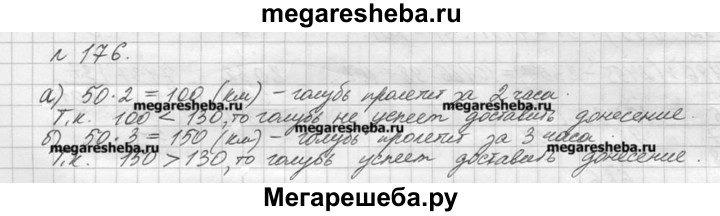 megaresheba.ru
№ 176.
а) 50·2 = 100 (км) – голубь пролетит за 2 часа.
megaresheba.ru megaresheba.ru
Т.к. 100 < 130, то голубь не успеет доставить донесение.
б) 50·3 = 150 (км) – голубь пролетит за 3 часа.
megaresheba.ru megaresheba.ru megaresheba.ru
Т.к. 150 > 130, то голубь успеет доставить донесение.
Мегарешеба.ру